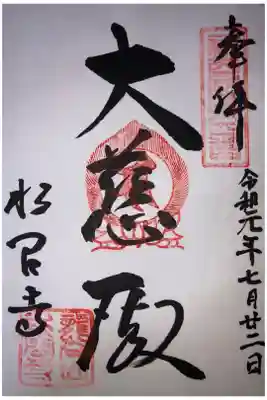 奉拝
令和元年七月廿二日
大慈殿
松尾寺